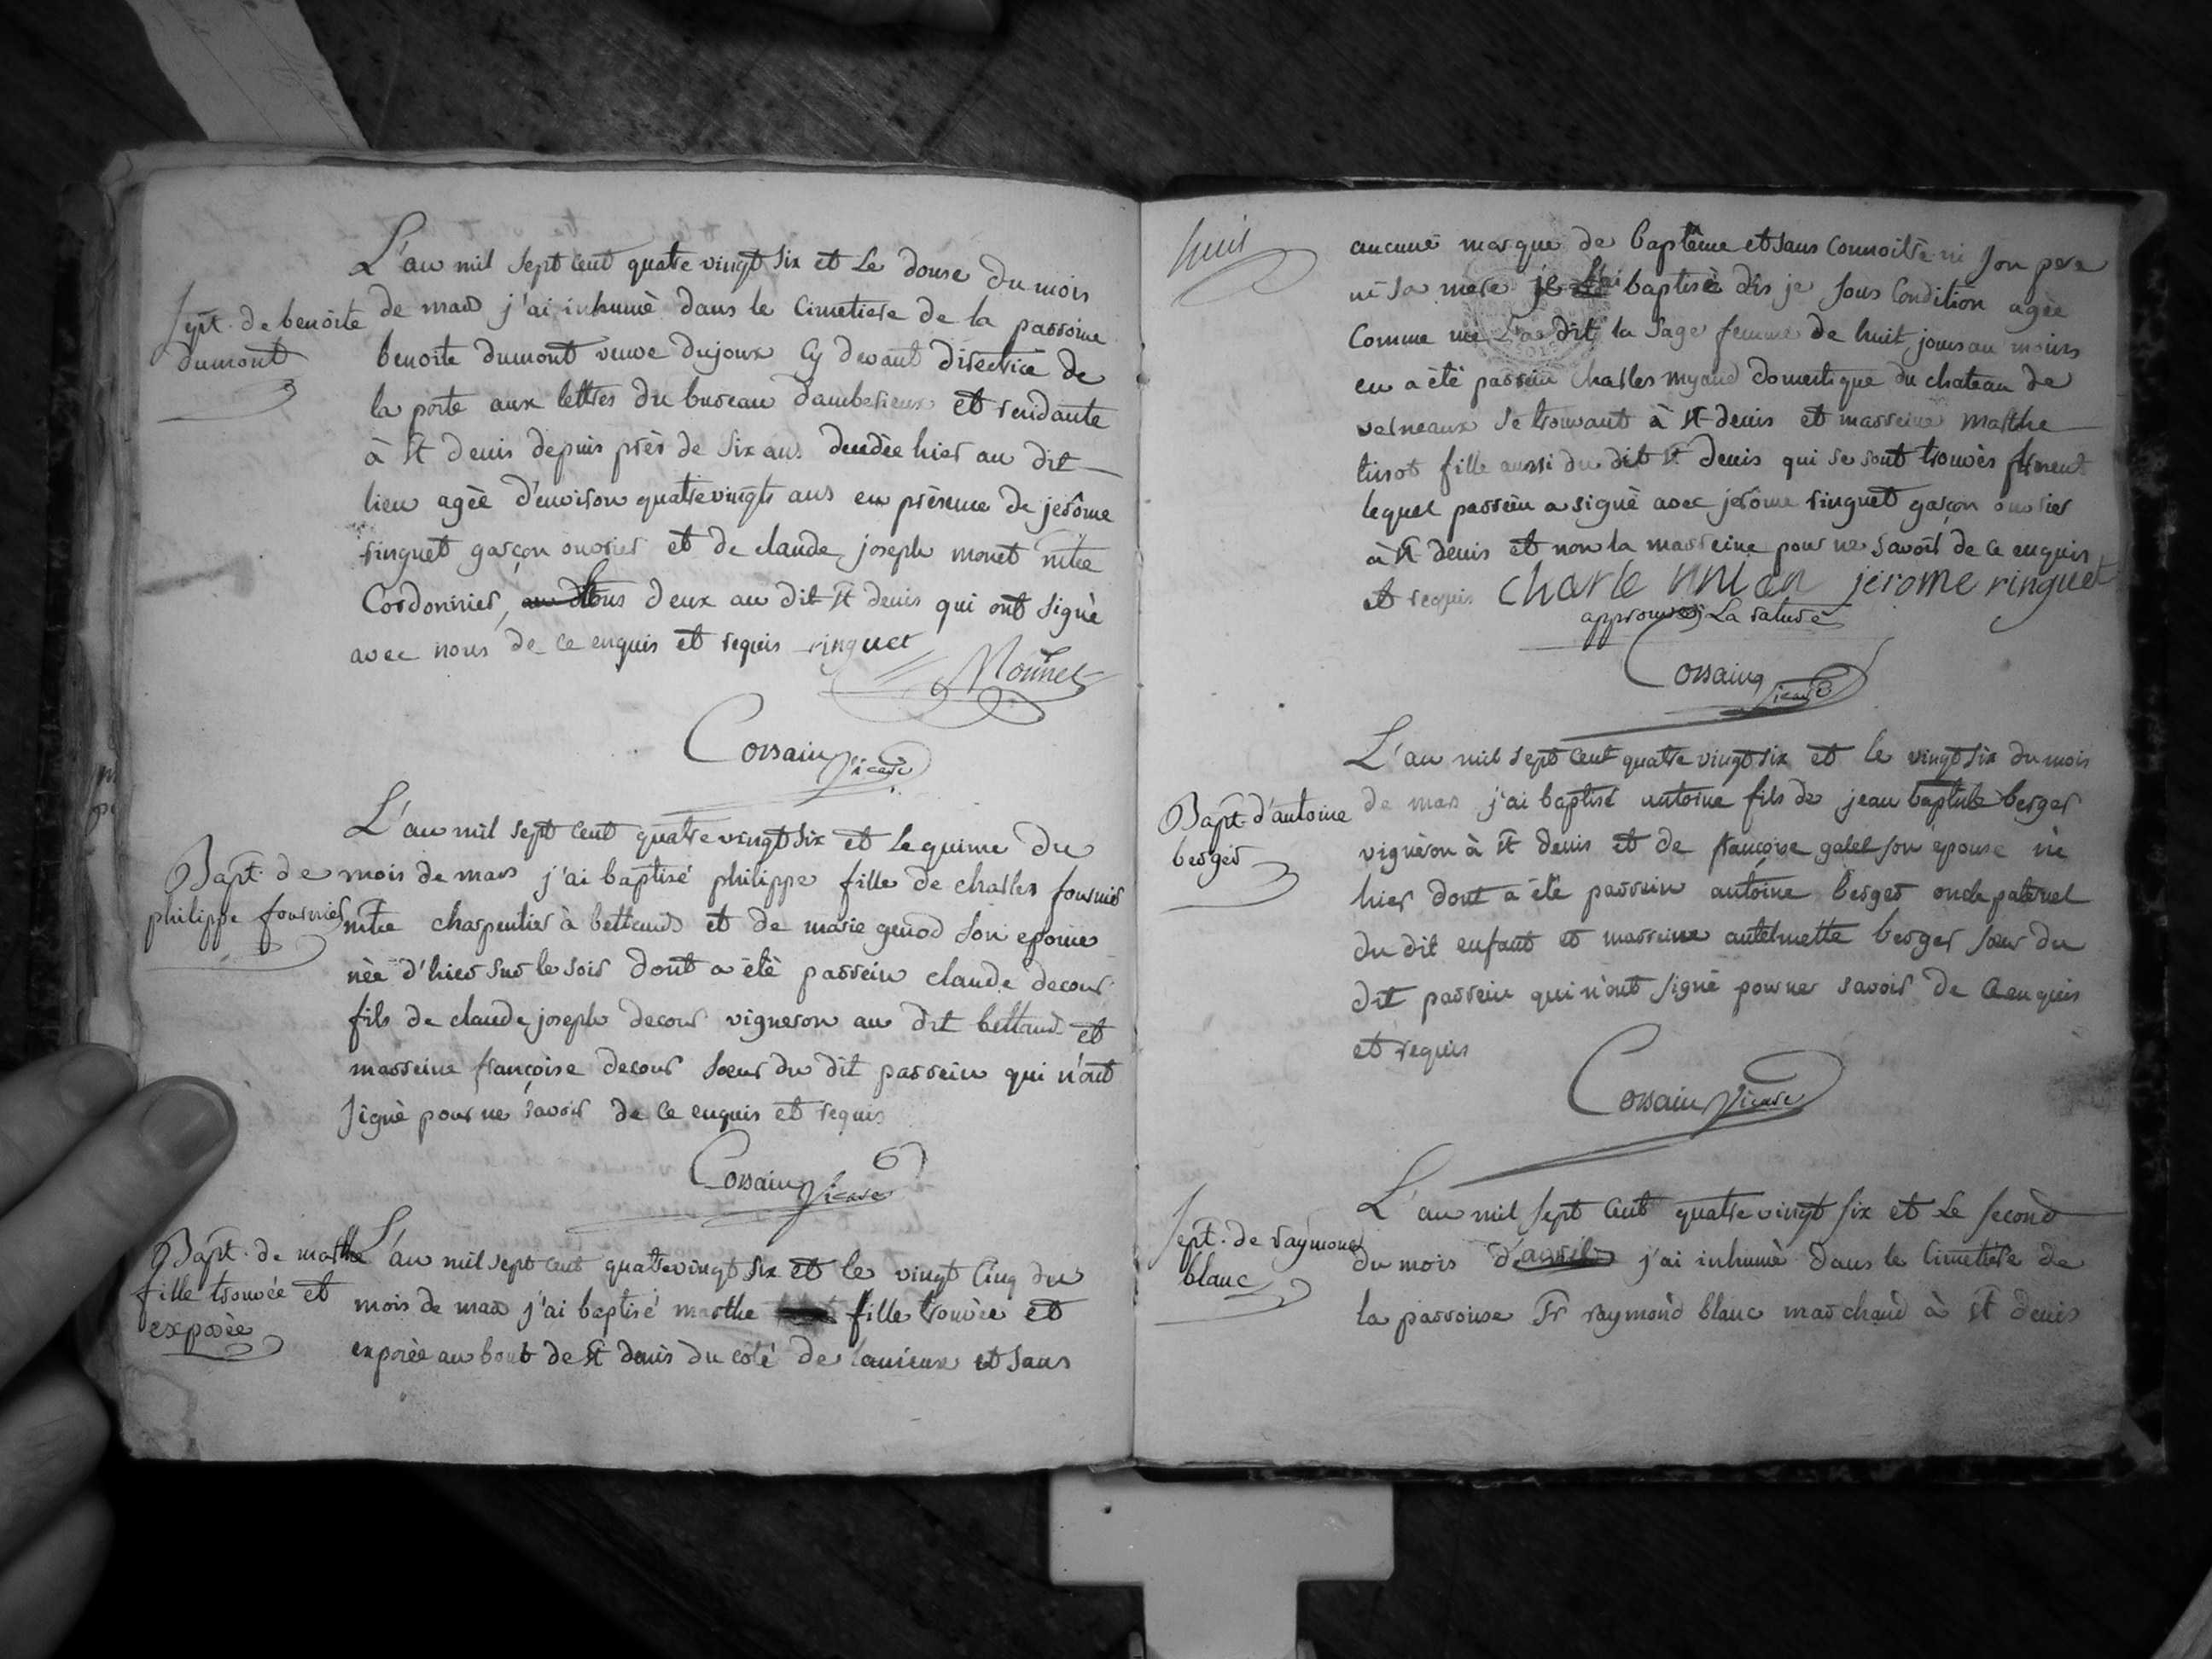 L'an mil sept cent quatre vingt six et Le douse du mois
Sept. de benoite
dumont
de mars j'ai inhumè dans le Cimetiere de la parroisse
benoite dumont veuve dujoux Cy devant directrice de
la poste aux lettres du bureau d'amberieux et residante
à St denis depuis près de six ans decedée hier au dit
lieu agèe d'environ quatrevingts ans en présence de jerôme
ringuet garçon ouvrier et de claude joseph monet mtre
Cordonnier, tous deux au dit St denis qui ont signè
avec nous de ce enquis et requis ringuet
Monnet
Corsain vicaire
L'an mil sept cent quatre vingt six et le quinse du
Bapt. de
philippe fournier
mois de mars j'ai baptisé philippe fille de charles fournier
mtre charpentier à bettand et de marie genod son epouse
nèe d'hier sur le soir dont a étè parrein claude decour
fils de claude joseph decour vigneron au dit bettand et
marreine françoise decour soeur du dit parrein qui n'ont
signè pour ne savoir de ce enquis et requis
Corsain vicaire
Bapt. de marthe
fille trouvée et
exposèe
L'an mil sept cent quatrevingt six et le vingt Cinq du
mois de mars j'ai baptisé marthe fille trouvèe et
exposèe au bout de St denis du côté de lanieux et sans
huit
aucune marque de baptême et sans Connoitre ni son pere
ni sa mere je l'ai baptisèe dis je sous Condition agèe
Comme me l'a dit la sage femme de huit jours au moins
en a étè parrein Charles myand domestique du chateau de
verneaux se trouvant à St denis et marreine marthe
tirot fille aussi du dit St denis qui se sont trouvès présent
lequel parrein a signè avec jerôme ringuet garçon ouvrier
à St denis et non la marreine pour ne savoir de ce enquis
et requis charle mian jerome ringuet
approuvé La rature
Corsain vicaire
L'an mil sept cent quatre vingt six et le vingt six du mois
Bapt. d'antoine
berger
de mars j'ai baptisé antoine fils de jean baptiste berger
vigneron à St denis et de françoise galet son epouse nè
hier dont a étè parrein antoine berger oncle paternel
du dit enfant et marreine antelmette berger soeur du
dit parrein qui n'ont signè pour ne savoir de ce enquis
et requis
Corsain vicaire
Sept. de raymond
blanc
L'an mil sept cent quatre vingt six et Le second
du mois d'avril j'ai inhumè dans le Cimetiere de
la parroisse Sr raymond blanc marchand à St denis